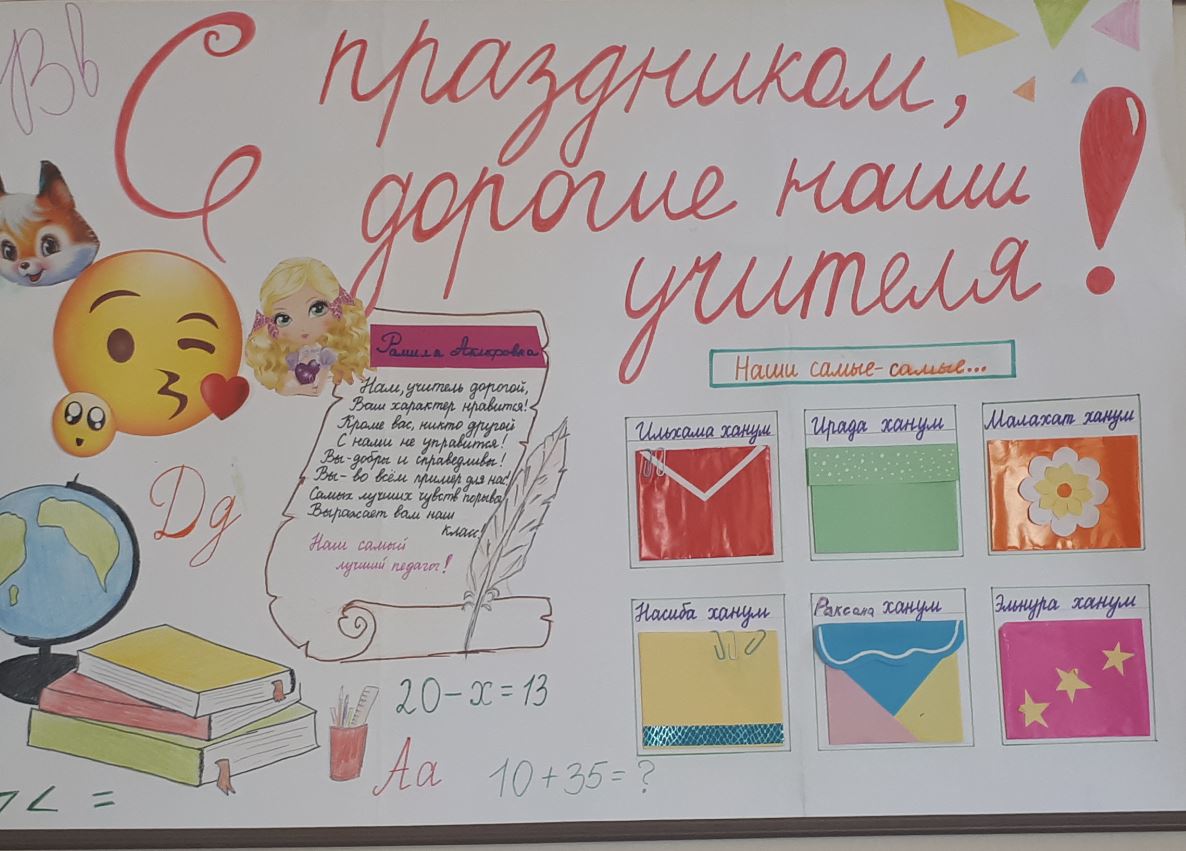 Вв
С праздником,
дорогие наши
учителя!
Нам, учитель дорогой,
Ваш характер нравится!
Кроме вас, никто другой
С нами не управится!
Вы-добры и справедливы!
Вы-во всём пример для нас!
Самых лучших чувств порывы
Выражает вам наш
класс!
Наш самый
лучший педагог!
Дд
Наши самые-самые...
Ильхама ханум
Ирада ханум
Малахат ханум
Насиба ханум
Раксана ханум
Эльнура ханум
20-х=13
Аа
10+35=?
><=